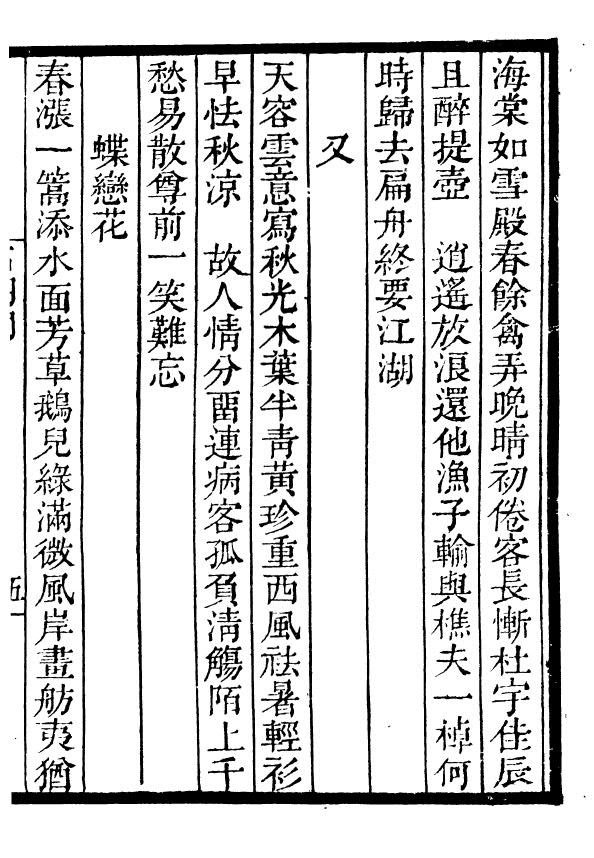 海棠如雪殿春餘禽弄晚晴初倦客長慚杜宇佳辰
且醉提壺　逍遙放浪還他漁子輸與樵夫一棹何
時歸去扁舟終要江湖
又
天容雲意寫秋光木葉半靑黃珍重西風祛暑輕衫
早怯秋涼　故人情分畱連病客孤負淸觴陌上千
愁易散尊前一笑難忘
蝶戀花
春漲一篙添水面芳草鵝兒綠滿微風岸畫舫夷猶
五